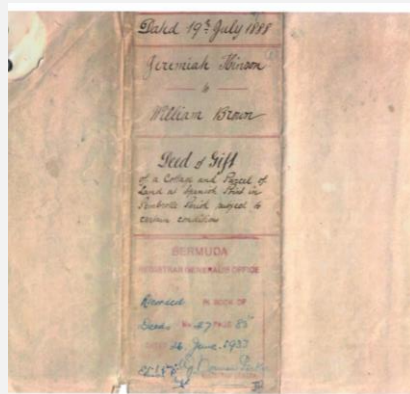 Dated 19th July 1888
Jeremiah Hinson
to
William Brown
Deed of Gift
of a Cottage and Parcel of
Land at Spanish Point in
Pembroke Parish subject to
certain conditions
BERMUDA
REGISTRAR GENERAL'S OFFICE
Recorded IN BOOK OF
Deeds No. 27 PAGE 85
June 1933